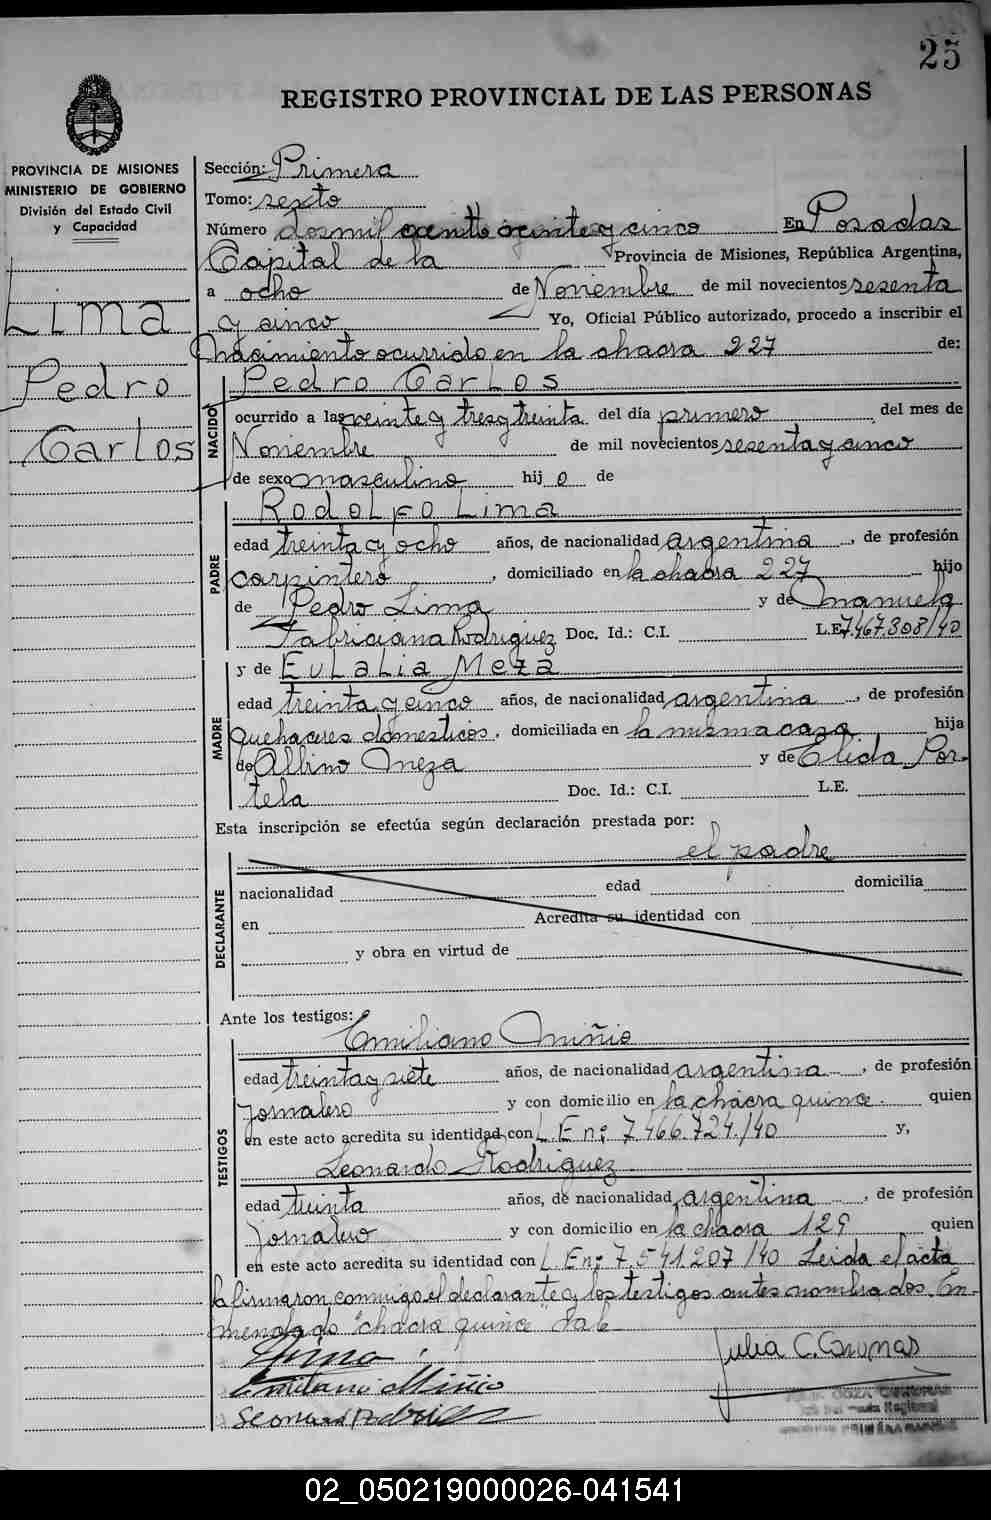 25
REGISTRO PROVINCIAL DE LAS PERSONAS
PROVINCIA DE MISIONES
MINISTERIO DE GOBIERNO
División del Estado Civil
y Capacidad
Lima
Pedro
Carlos
Sección: Primera
Tomo: sexto
Número dosmil veinte y cinco En Posadas
Capital de la Provincia de Misiones, República Argentina,
a ocho de Noviembre de mil novecientos sesenta
y cinco Yo, Oficial Público autorizado, procedo a inscribir el
nacimiento ocurrido en la chacra 227 de:
NACIDO
Pedro Carlos
ocurrido a las veinte y tres y treinta del día primero del mes de
Noviembre de mil novecientos sesenta y cinco
de sexo masculino hij o de
PADRE
Rodolfo Lima
edad treinta y ocho años, de nacionalidad argentina, de profesión
carpintero, domiciliado en la chacra 227 hijo
de Pedro Lima y de Manuela
Fabriciana Rodriguez Doc. Id.: C.I. L.E. 7.467.308/40
MADRE
y de Eulalia Meza
edad treinta y cinco años, de nacionalidad argentina, de profesión
quehaceres domesticos, domiciliada en la misma casa hija
de Albino Meza y de Elida Por-
tela Doc. Id.: C.I. L.E.
Esta inscripción se efectúa según declaración prestada por:
el padre
DECLARANTE
nacionalidad edad domicilia
en Acredita su identidad con
y obra en virtud de
Ante los testigos:
TESTIGOS
Emiliano Miñio
edad treinta y siete años, de nacionalidad argentina, de profesión
Jornalero y con domicilio en la chacra quince. quien
en este acto acredita su identidad con L.E nº 7.466.724./40 y,
Leonardo Rodriguez
edad treinta años, de nacionalidad argentina, de profesión
Jornalero y con domicilio en la chacra 129 quien
en este acto acredita su identidad con L.E nº 7.541.207/40 Leida el acta
la firmaron conmigo el declarante y los testigos antes nombrados. En-
mendado "chacra quince" Vale
Lima
Emiliano Miñio
Julia C. Coronas
02_050219000026-041541